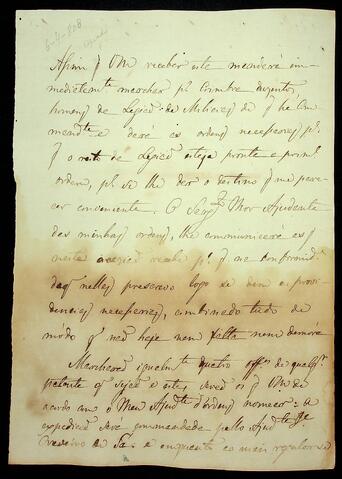 6-4-808
Assim q VM receber este mandará im-
mediatamente marchar pª Coimbra duzentos
homens da Legião de Milicias de q he Com-
mandte e dará as ordens necessarias pª
q o resto da Legião esteja prompta á prima
ordem, pª se lhe dar o destino q me pare-
cer conveniente. O Sargto Mor Ajudante
das minhas ordens, lhe communicará as q
nesta occazião recebe pª q na conformide
das q nellas prescrevo logo se dem as provi-
dencias necessarias, combinado tudo de
modo q não haja nem falta nem demóra
Marcharão igualmte quatro offes de qualqr
patente q sejão e estes, serão os q VM de
acordo com o Meu Ajudte d'ordens nomear: a
expedição será commandada pello Ajudte
de Sá. e enquanto ao mais regular-se